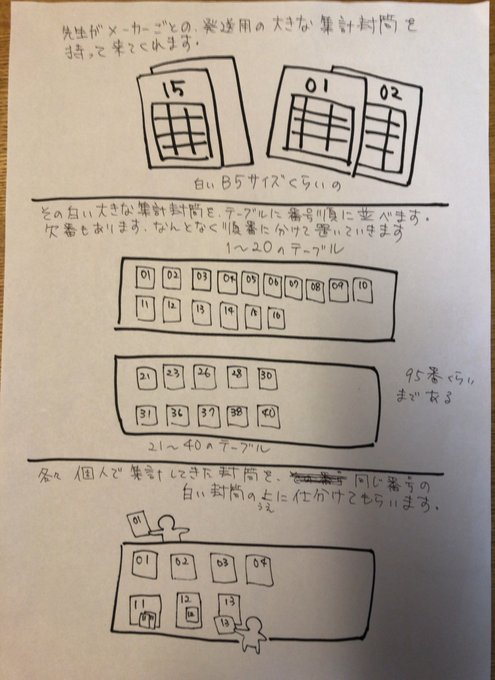 先生がメーカーごとの、発送用の大きな集計封筒を
持って来てくれます。
15
01
02
白いB5サイズくらいの
その白い大きな集計封筒を、テーブルに番号順に並べます。
欠番もあります、なんとなく順番に分けて置いていきます
1〜20のテーブル
01 02 03 04 05 06 07 08 09 10
11 12 13 14 15 16
21 23 26 28 30
31 36 37 38 40
95番くらい
まである
21〜40のテーブル
各々個人で集計してきた封筒を、同じ番号の
白い封筒の上に仕分けてもらいます。
うえ
01
01 02 03 04
11 12 13
13